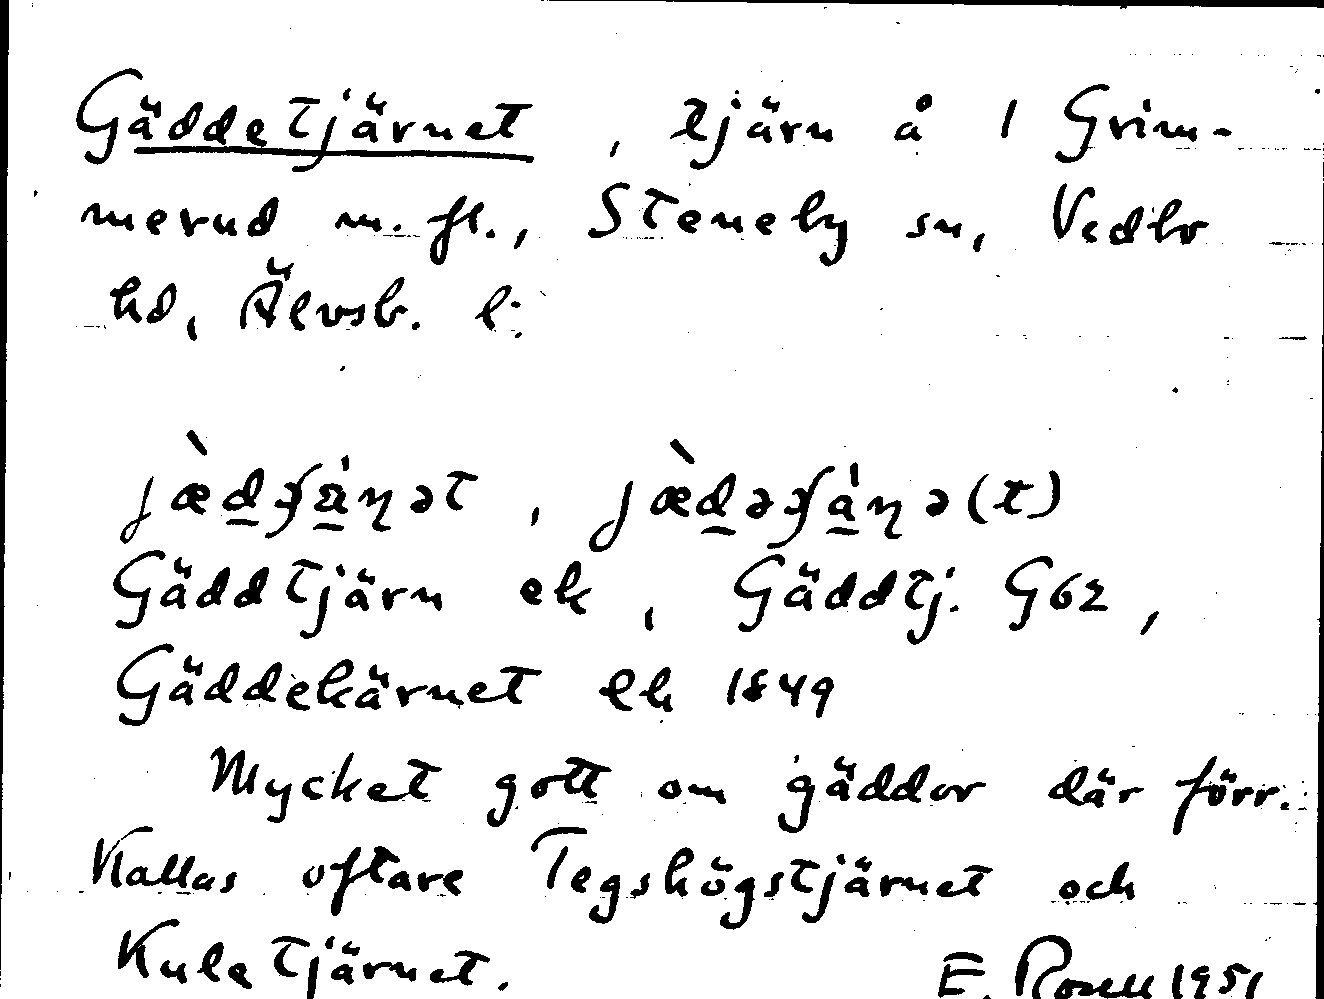 Gäddetjärnet, tjärn å 1 Grim-
merud m. fl., Steneby sn, Vedbo
hd, Älvsb. l.
Gäddtjärn ek, Gäddtj. G62,
Gäddekärnet ek 1849
Mycket gott om gäddor där förr.
Kallas oftare Tegshögstjärnet och
Kuletjärnet. E. Rosell 1951